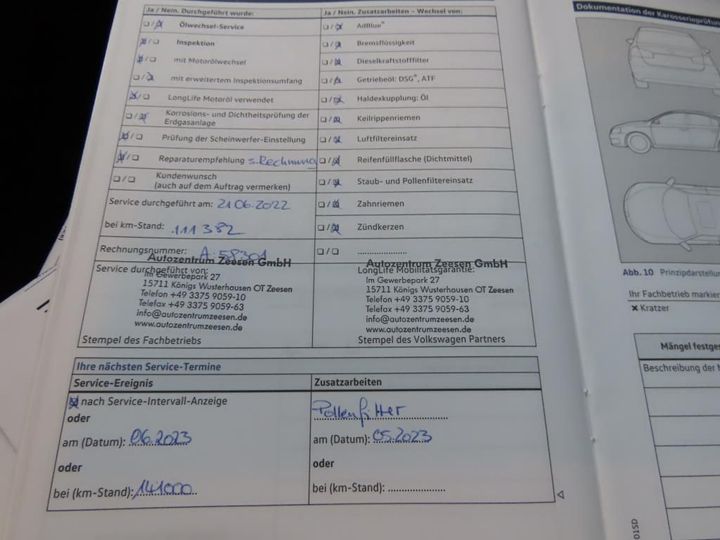 Ja / Nein. Durchgeführt wurde:
Ja / Nein. Zusatzarbeiten – Wechsel von:
Ölwechsel-Service
AdBlue®
Inspektion
Bremsflüssigkeit
mit Motorölwechsel
Dieselkraftstofffilter
mit erweitertem Inspektionsumfang
Getriebeöl: DSG®, ATF
LongLife Motoröl verwendet
Haldexkupplung: Öl
Korrosions- und Dichtheitsprüfung der
Erdgasanlage
Keilrippenriemen
Prüfung der Scheinwerfer-Einstellung
Luftfiltereinsatz
Reparaturempfehlung s. Rechnung
Reifenfüllflasche (Dichtmittel)
Kundenwunsch
(auch auf dem Auftrag vermerken)
Staub- und Pollenfiltereinsatz
Service durchgeführt am: 21.06.2022
Zahnriemen
bei km-Stand: 111 382
Zündkerzen
Rechnungsnummer: A-58301
Autozentrum Zeesen GmbH
Service durchgeführt von:
Im Gewerbepark 27
15711 Königs Wusterhausen OT Zeesen
Telefon +49 3375 9059-10
Telefax +49 3375 9059-63
info@autozentrumzeesen.de
www.autozentrumzeesen.de
Stempel des Fachbetriebs
Autozentrum Zeesen GmbH
LongLife Mobilitätsgarantie:
Im Gewerbepark 27
15711 Königs Wusterhausen OT Zeesen
Telefon +49 3375 9059-10
Telefax +49 3375 9059-63
info@autozentrumzeesen.de
www.autozentrumzeesen.de
Stempel des Volkswagen Partners
Ihre nächsten Service-Termine
Service-Ereignis
Zusatzarbeiten
nach Service-Intervall-Anzeige
Pollenfilter
oder
am (Datum): 06.2023
am (Datum): 05.2023
oder
oder
bei (km-Stand): 141000
bei (km-Stand):
Dokumentation der Karosserieprüfun
Abb. 10 Prinzipdarstellu
Ihr Fachbetrieb markier
× Kratzer
Mängel festges
Beschreibung der M